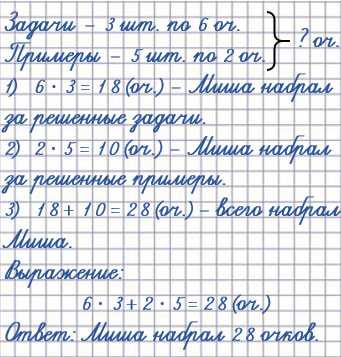 Задачи – 3 шт. по 6 оч.
Примеры – 5 шт. по 2 оч.
? оч.
1) 6 · 3 = 18 (оч.) – Миша набрал
за решенные задачи.
2) 2 · 5 = 10 (оч.) – Миша набрал
за решенные примеры.
3) 18 + 10 = 28 (оч.) – всего набрал
Миша.
Выражение:
6 · 3 + 2 · 5 = 28 (оч.)
Ответ: Миша набрал 28 очков.